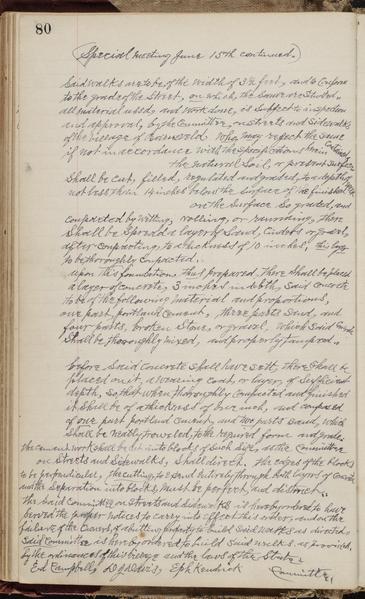 80
Special meeting June 15th continued.
Said walks are to be of the width of 3½ feet, and to conform
to the grade of the Street, on which the same are situated.
all material used, and work done, is subject to inspection
and approval, by the Committee, on streets and sidewalks
of the village of Roseville who may reject the same
if not in accordance with the specifications herein
the natural Soil, or present surface
Shall be cut, filled, regulated and graded, to a depth of
not less than 14 inches below the surface of the finished
on the surface So graded, and
compacted by wetting, rolling, or ramming, there
Shall be Spread a layer of Sand, Cinders or gravel,
after compacting, to a thickness of 10 inches, the layer
to be thoroughly compacted.
upon this foundation thus prepared. There shall be placed
a layer of concrete, 3 inches in depth, Said concrete
to be of the following material and proportions,
one part portland cement, three parts Sand, and
four parts, broken Stone, or gravel, which Said
Shall be thoroughly mixed, and properly tamped.
before Said Concrete shall have sett, there Shall be
placed on it, a wearing coat, or layer, of sufficient
depth, so that when thoroughly compacted and finished
it shall be of a thickness of one inch, and composed
of one part portland cement, and two parts sand, which
shall be neatly troweled, to the required form and grade.
the cement work shall be cut into blocks of such size, as the Committee
on Streets and Sidewalks, shall direct. The edges of the blocks
to be perpendicular, the cutting to extend entirely through both layers of concrete
and the separation into blocks must be perfect, and distinct.
the said Committee on Streets and sidewalks is hereby ordered to have
served the proper notices to carry into effect this order, and on the
failure of the owners of abutting property to build said walks as directed
said Committee is hereby ordered to build said walks as provided
by the ordinances of this village and the laws of the State.
Ed Campbell, Eph Kendrick
Committee